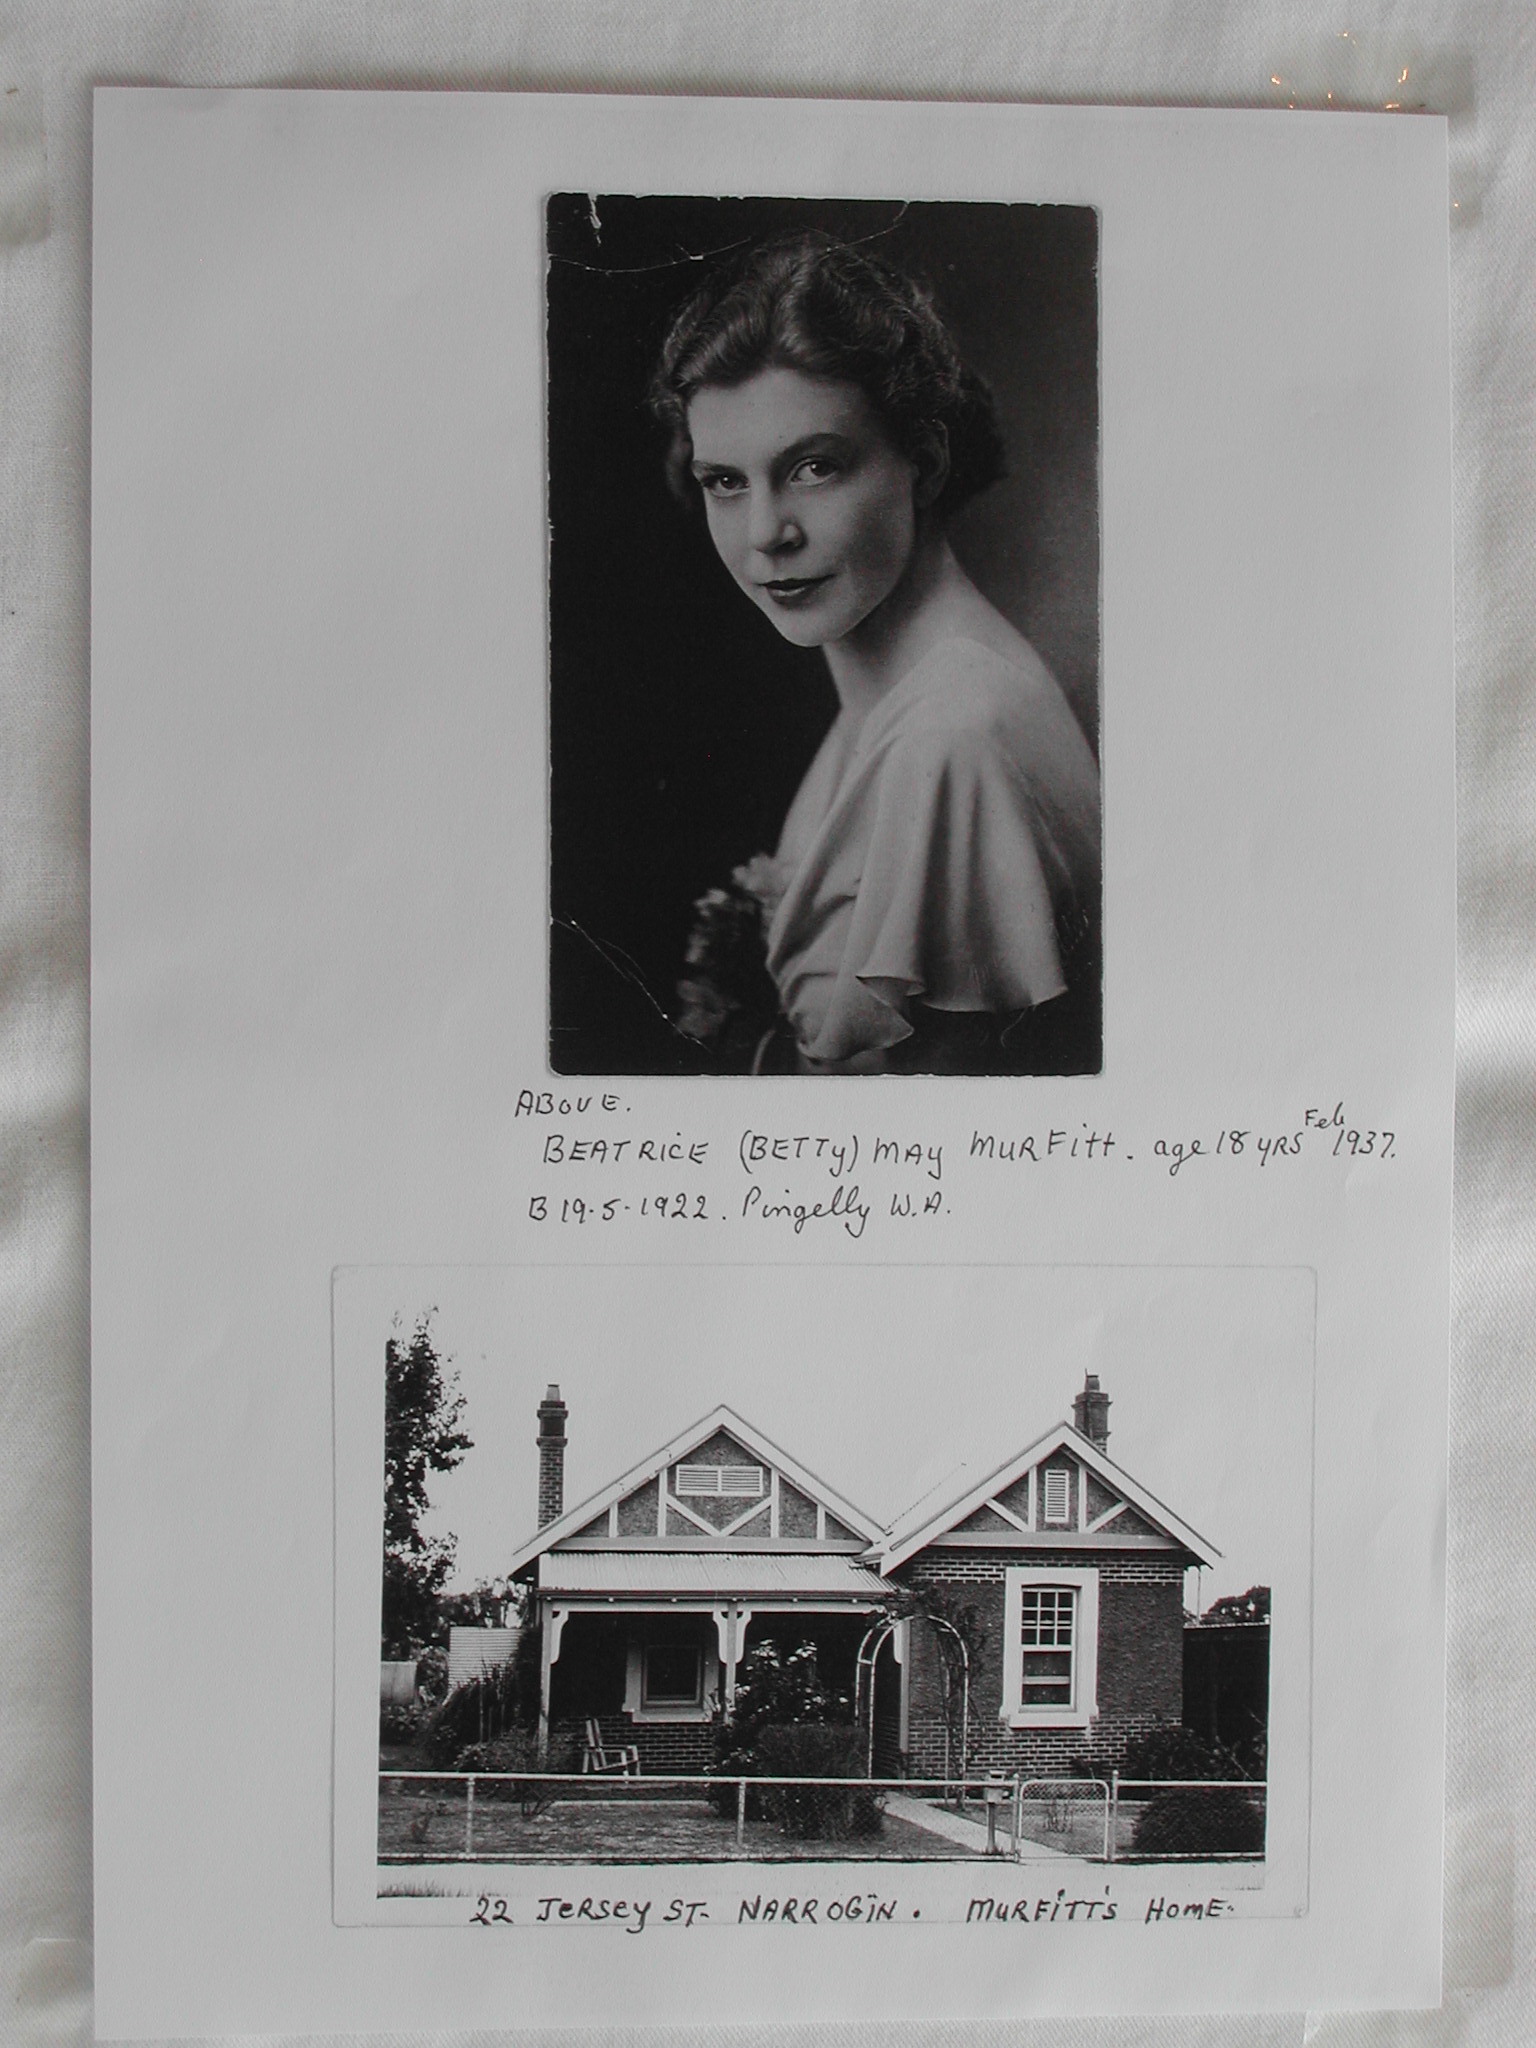 ABOVE.
BEATRICE (BETTy) MAy MURFitt. age 18 yRS Feb 1937.
B 19-5-1922. Pingelly W.A.
22 JeRSey ST- NARROGiN. MURFiTT'S HOME-